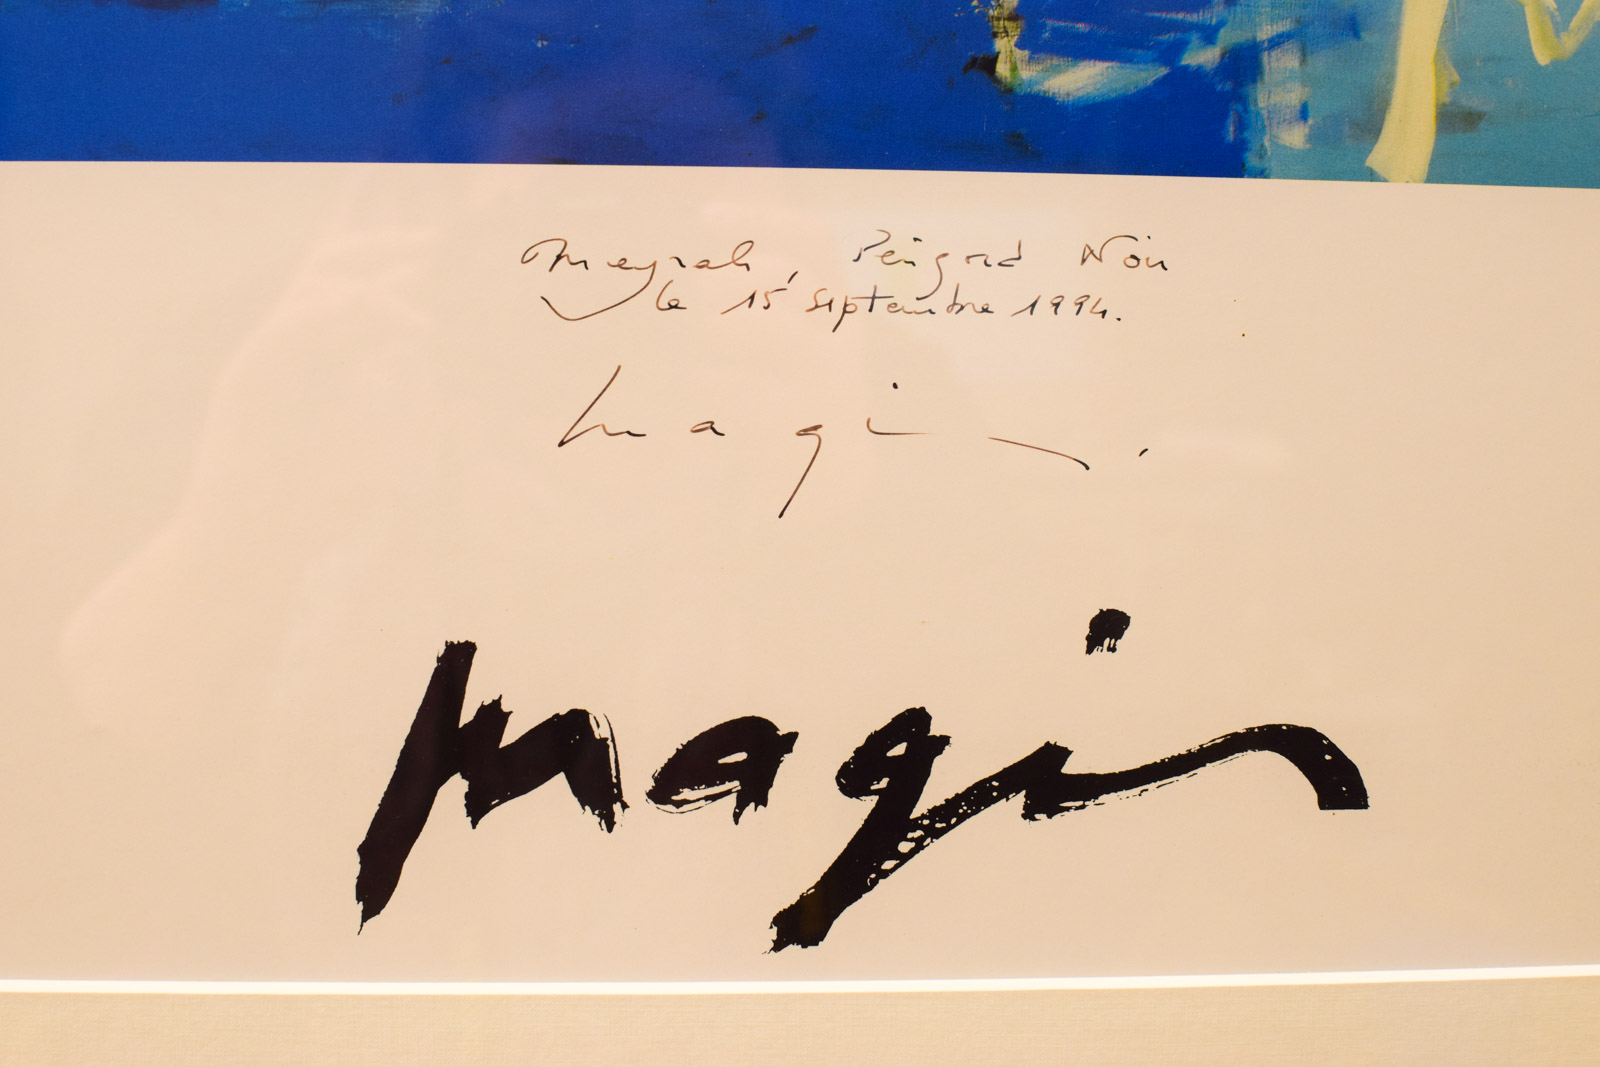 Meyrals, Périgord Noir
le 15 septembre 1994.
Magin.
Magin